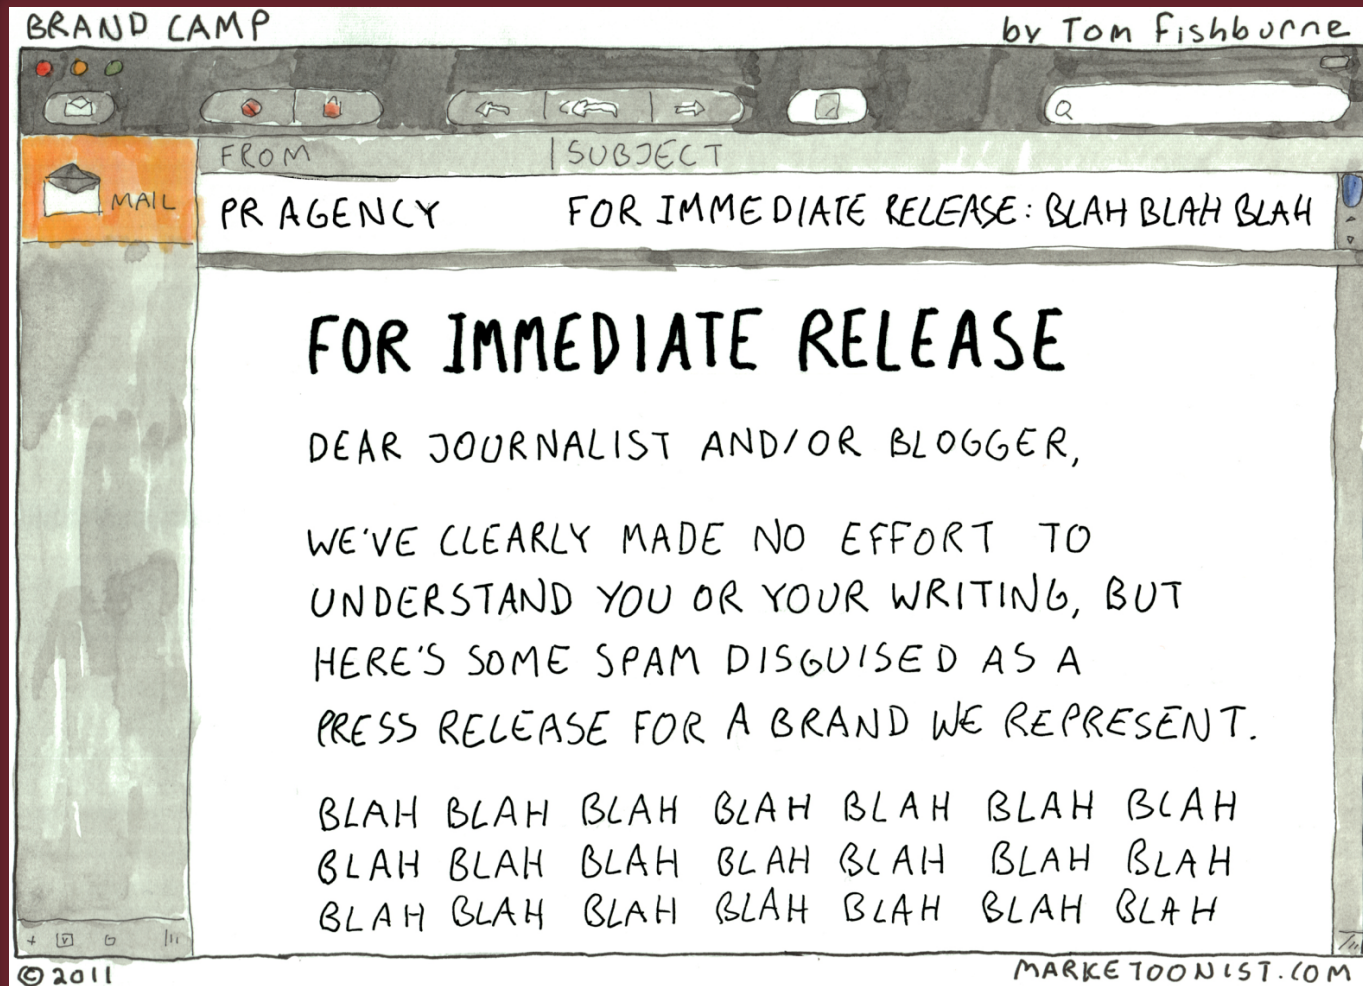 BRAND CAMP by Tom Fishburne
FROM | SUBJECT
MAIL
PR AGENCY FOR IMMEDIATE RELEASE: BLAH BLAH BLAH
FOR IMMEDIATE RELEASE
DEAR JOURNALIST AND/OR BLOGGER,
WE'VE CLEARLY MADE NO EFFORT TO
UNDERSTAND YOU OR YOUR WRITING, BUT
HERE'S SOME SPAM DISGUISED AS A
PRESS RELEASE FOR A BRAND WE REPRESENT.
BLAH BLAH BLAH BLAH BLAH BLAH BLAH
BLAH BLAH BLAH BLAH BLAH BLAH BLAH
BLAH BLAH BLAH BLAH BLAH BLAH BLAH
© 2011 MARKETOONIST.COM